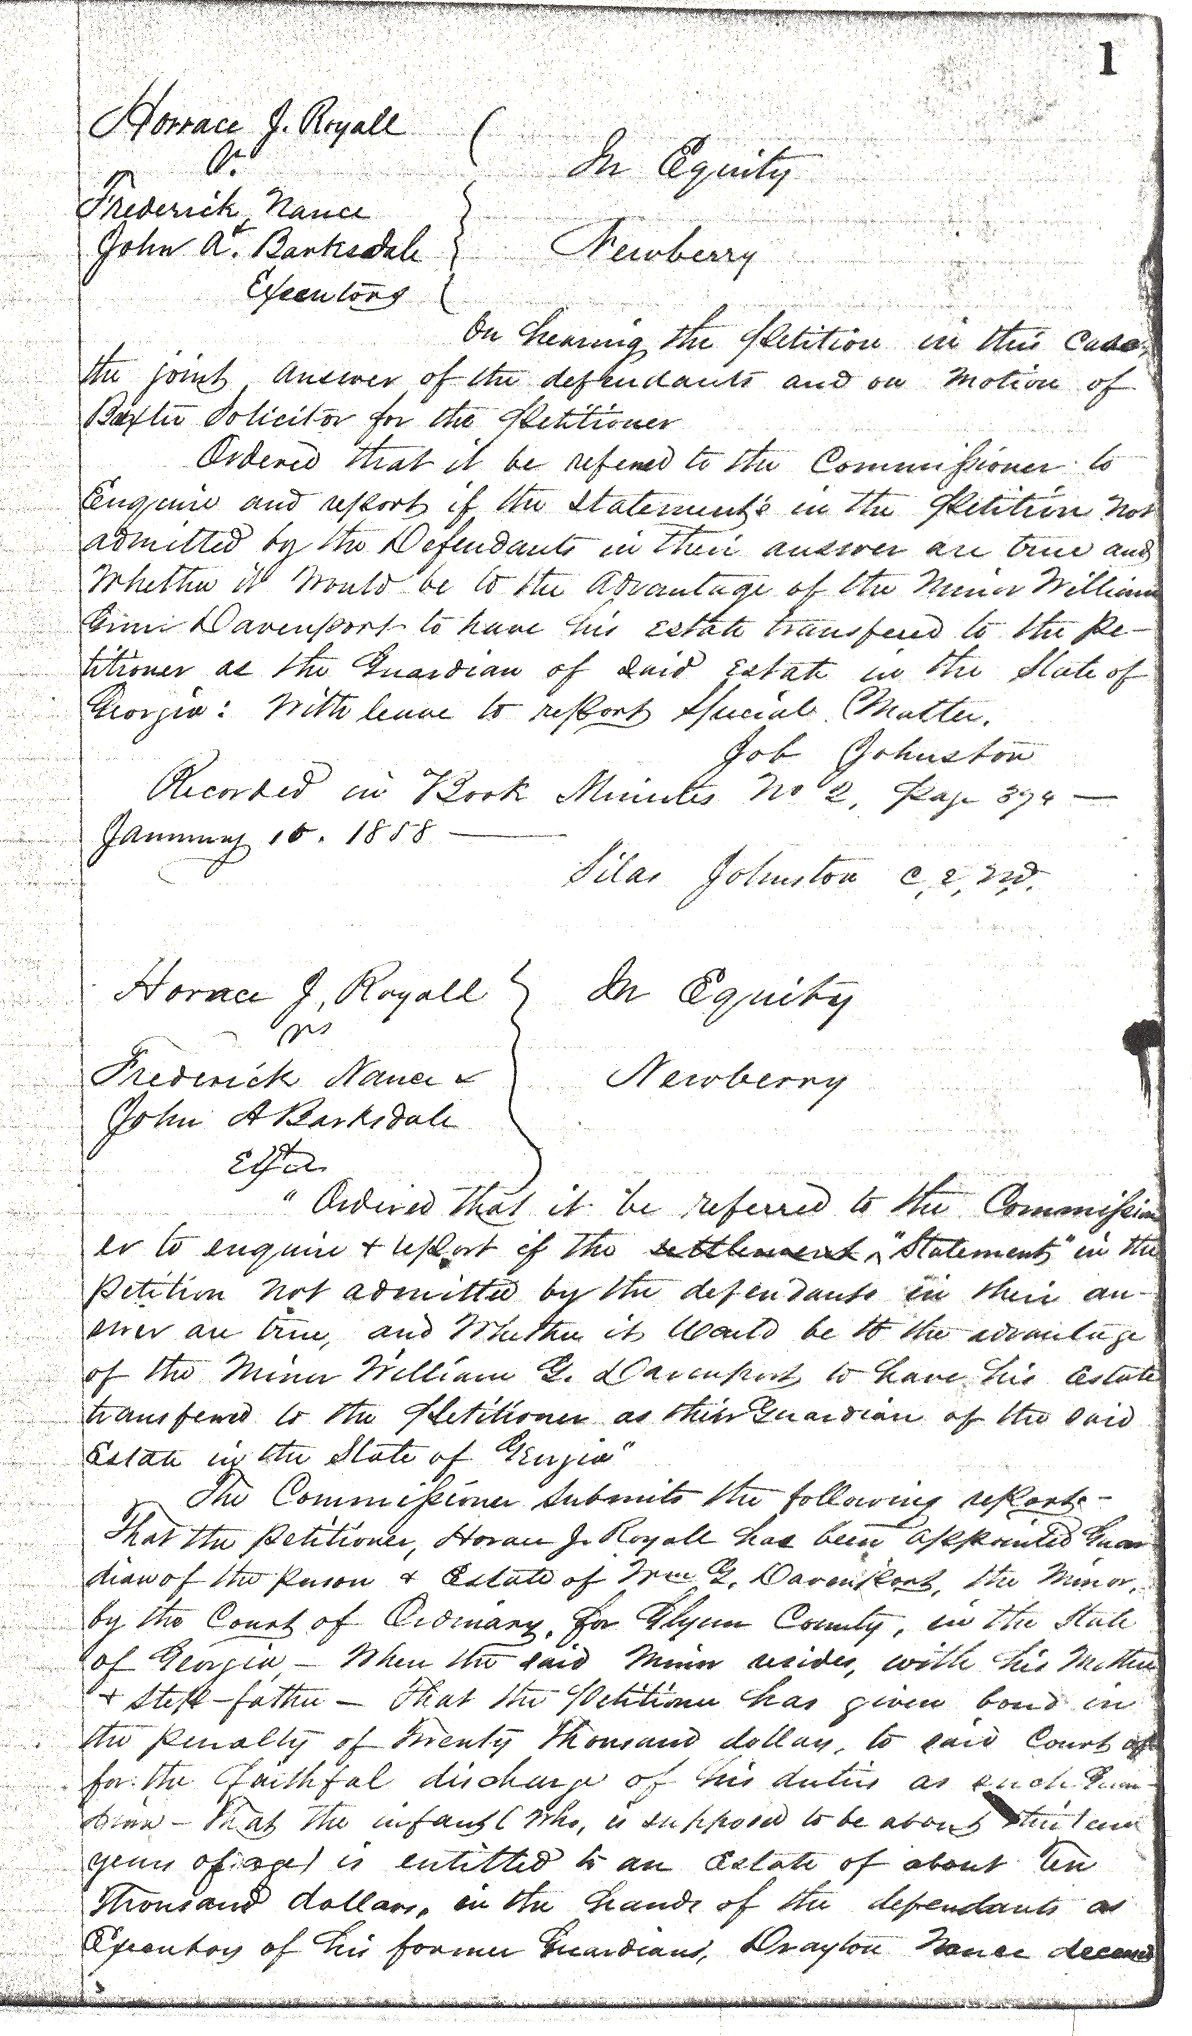 1
Horrace J. Royall
vs.
In Equity
Frederick Nance
John A. Barksdale
Newberry
Executors
On hearing the Petition in this Case,
the joint answer of the defendants and on motion of
Baxter Solicitor for the Petitioner
Ordered that it be referred to the Commissioner to
Enquire and report if the statements in the Petition not
admitted by the Defendants in their answer are true and
Whether it would be to the advantage of the minor William
Davenport to have his Estate transfered to the Pe-
titioner as the Guardian of said Estate in the State of
Georgia: With leave to report Special Matter.
Job Johnston
Recorded in Book Minutes No 2, Page 374 —
January 10. 1858 —
Silas Johnston C. E. N. D.
Horace J. Royall
vs
In Equity
Frederick Nance &
Newberry
John A Barksdale
"Ordered that it be referred to the Commission
er to enquire & report if the settlement "Statements" in the
Petition not admitted by the defendants in their an-
swer are true, and Whether it Would be to the advantage
of the Minor William G. Davenport to have his Estate
transferred to the Petitioner as their Guardian of the said
Estate in the State of Georgia"
The Commissioner submits the following report:-
That the Petitioner, Horace J. Royall has been appointed Guar
dian of the person & Estate of Wm G. Davenport, the Minor,
by the Court of Ordinary, for Glynn County, in the State
of Georgia, — When the said Minor resides, with his Mother
& Step-father — That the Petitioner has given bond in
the penalty of Twenty Thousand dollars, to said Court
for the faithful discharge of his duties as such Guar-
dian — That the infant (who, is supposed to be about
years of age) is entitled to an Estate of about Ten
Thousand dollars, in the hands of the defendants as
Executors of his former Guardians, Drayton Nance deceased